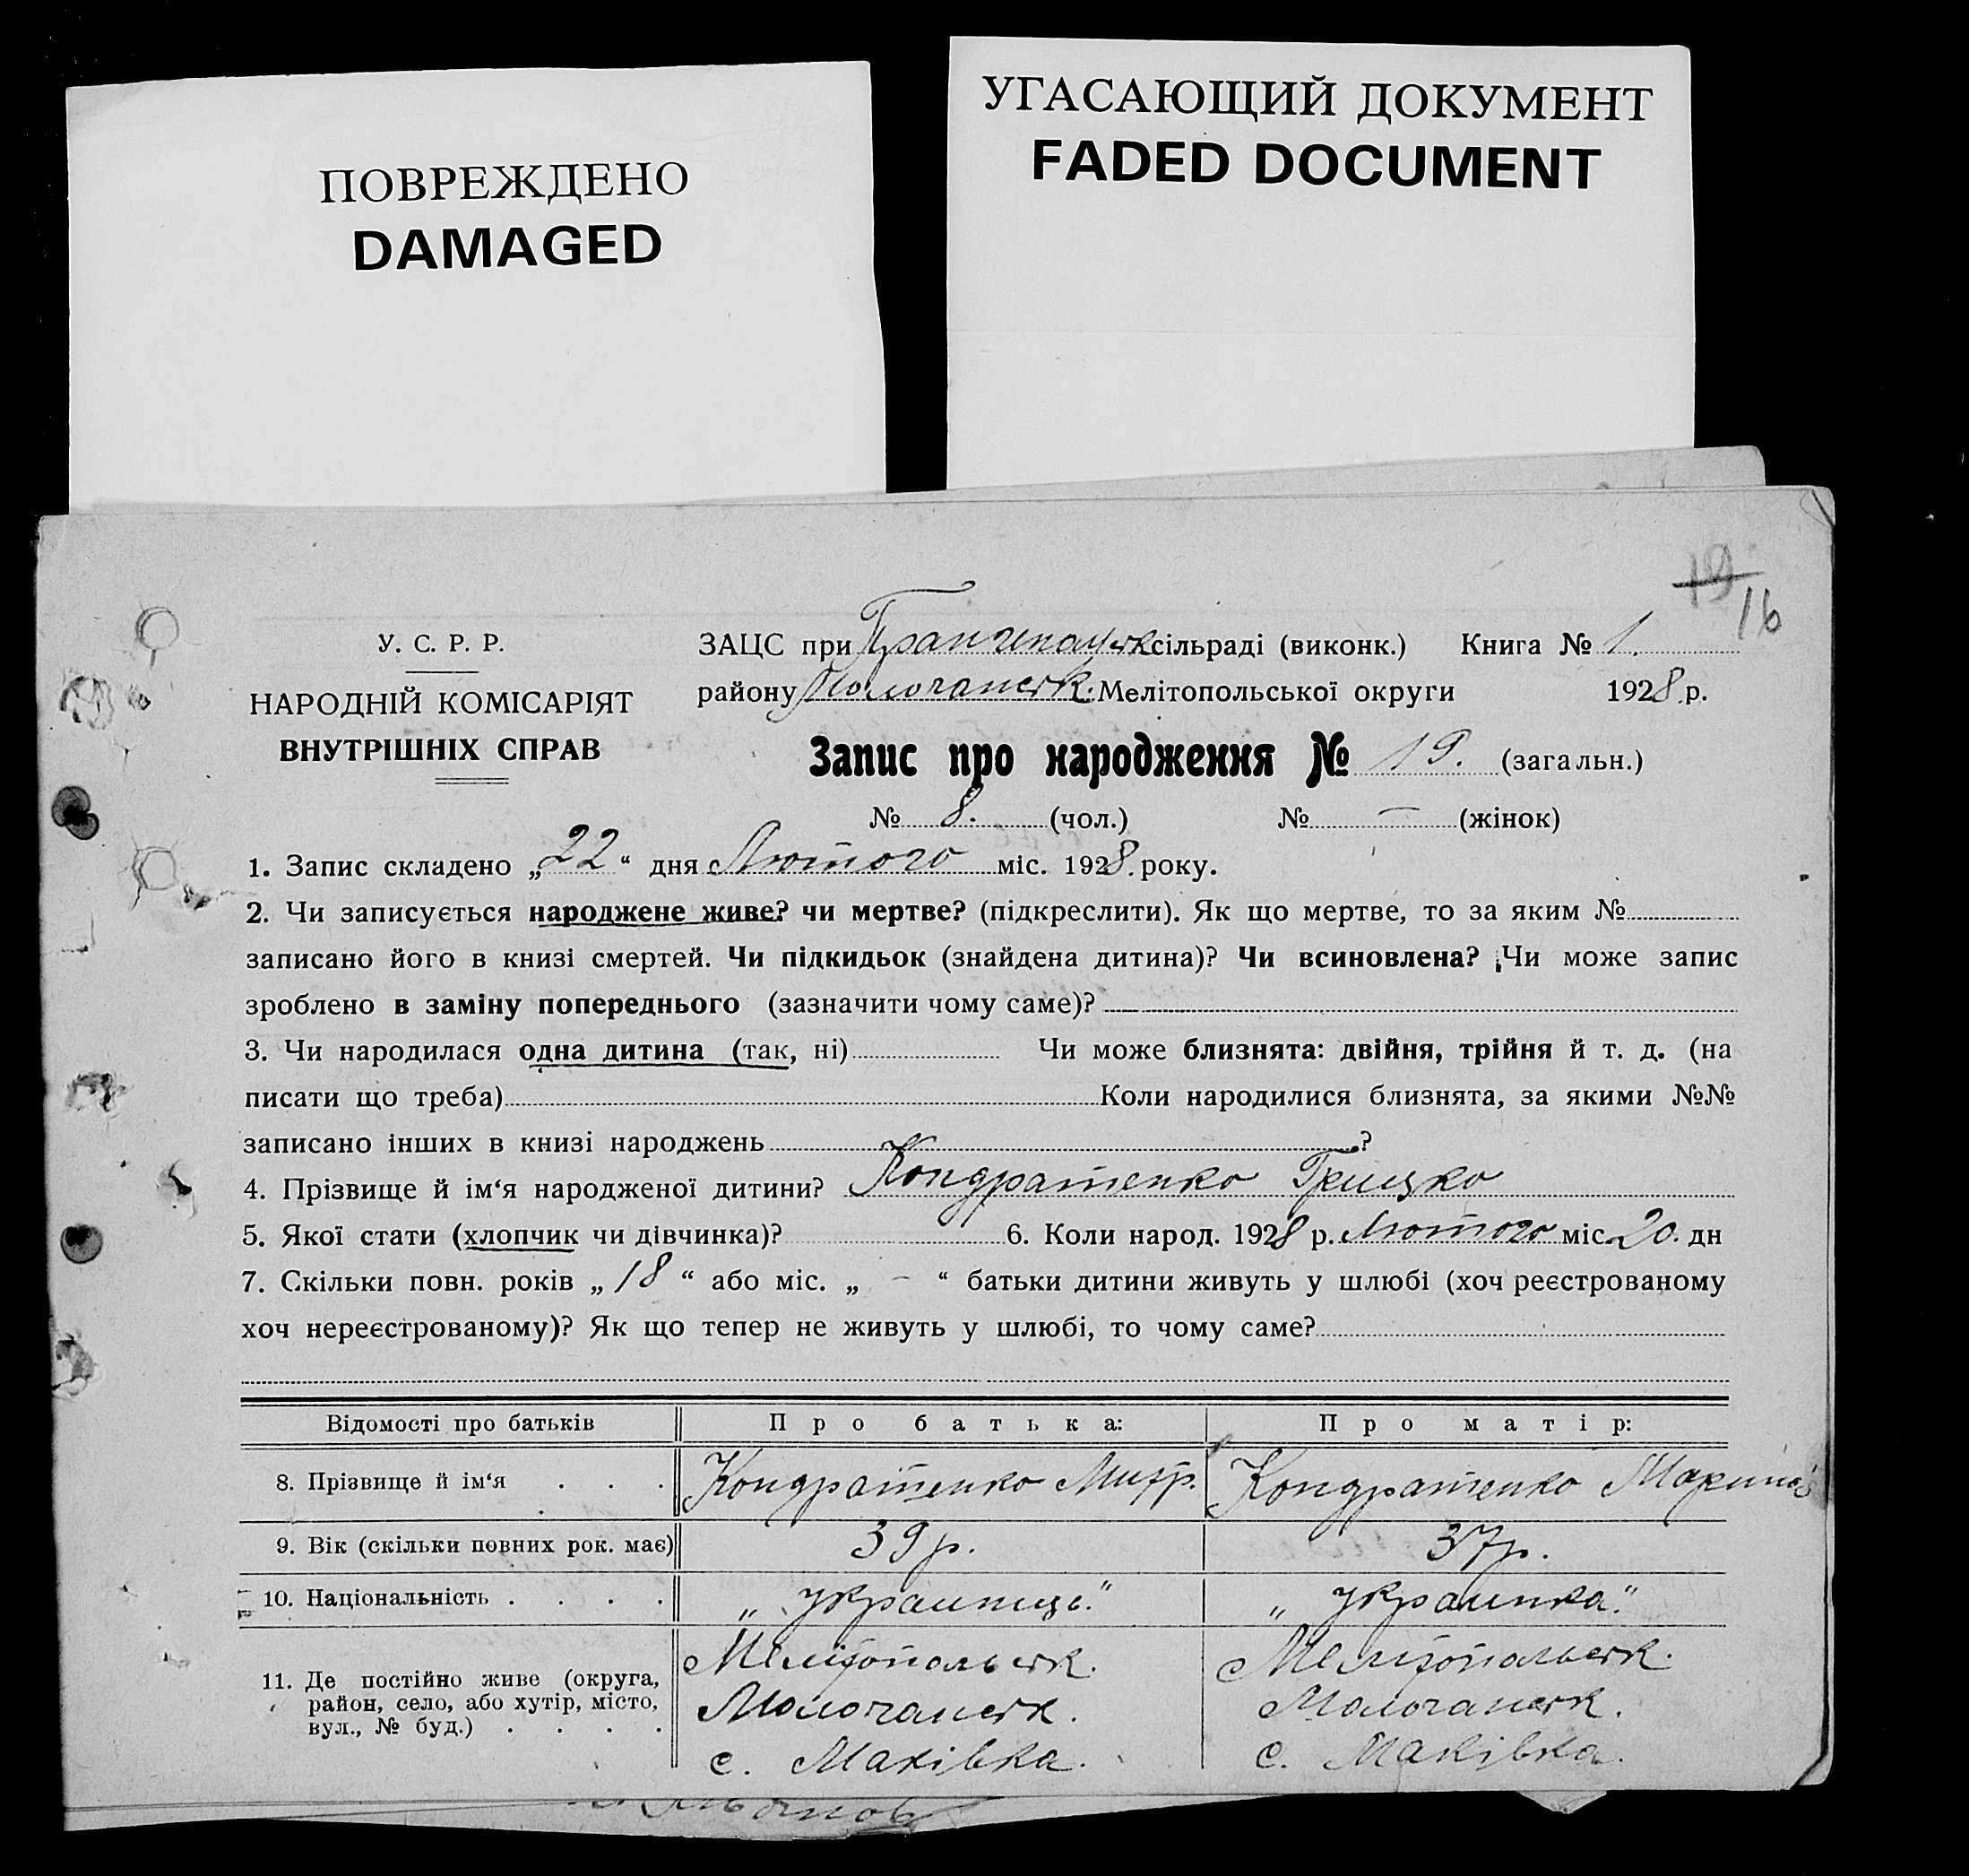 ПОВРЕЖДЕНО
DAMAGED
УГАСАЮЩИЙ ДОКУМЕНТ
FADED DOCUMENT
19
16
У. С. Р. Р.
НАРОДНІЙ КОМІСАРІЯТ
ВНУТРІШНІХ СПРАВ
ЗАЦС при сільраді (виконк.) Книга № 1.
району Молочанськ. Мелітопольської округи 1928 р.
Запис про народження № 19. (загальн.)
№ 8. (чол.) № — (жінок)
1. Запис складено „22“ дня Лютого міс. 1928 року.
2. Чи записується народжене живе? чи мертве? (підкреслити). Як що мертве, то за яким №
записано його в книзі смертей. Чи підкидьок (знайдена дитина)? Чи всиновлена? Чи може запис
зроблено в заміну попереднього (зазначити чому саме)?
3. Чи народилася одна дитина (так, ні) Чи може близнята: двійня, трійня й т. д. (на
писати що треба) Коли народилися близнята, за якими №№
записано інших в книзі народжень ?
4. Прізвище й ім‘я народженої дитини? Кондратенко Грицко
5. Якої стати (хлопчик чи дівчинка)? 6. Коли народ. 1928 р. Лютого міс. 20. дн
7. Скільки повн. років „18“ або міс. „ – “ батьки дитини живуть у шлюбі (хоч реєстрованому
хоч нереєстрованому)? Як що тепер не живуть у шлюбі, то чому саме?
Відомості про батьків Про батька: Про матір:
8. Прізвище й ім‘я . . . Кондратенко Митр. Кондратенко Марина
9. Вік (скільки повних рок. має) 39 р. 37 р.
10. Національність . . . . „українць.“ „українка.“
11. Де постійно живе (округа,
район, село, або хутір, місто,
вул., № буд.) . . . .
Мелітопольськ. Мелітопольськ.
Молочанськ. Молочанськ.
с. Маківка. с. Маківка.